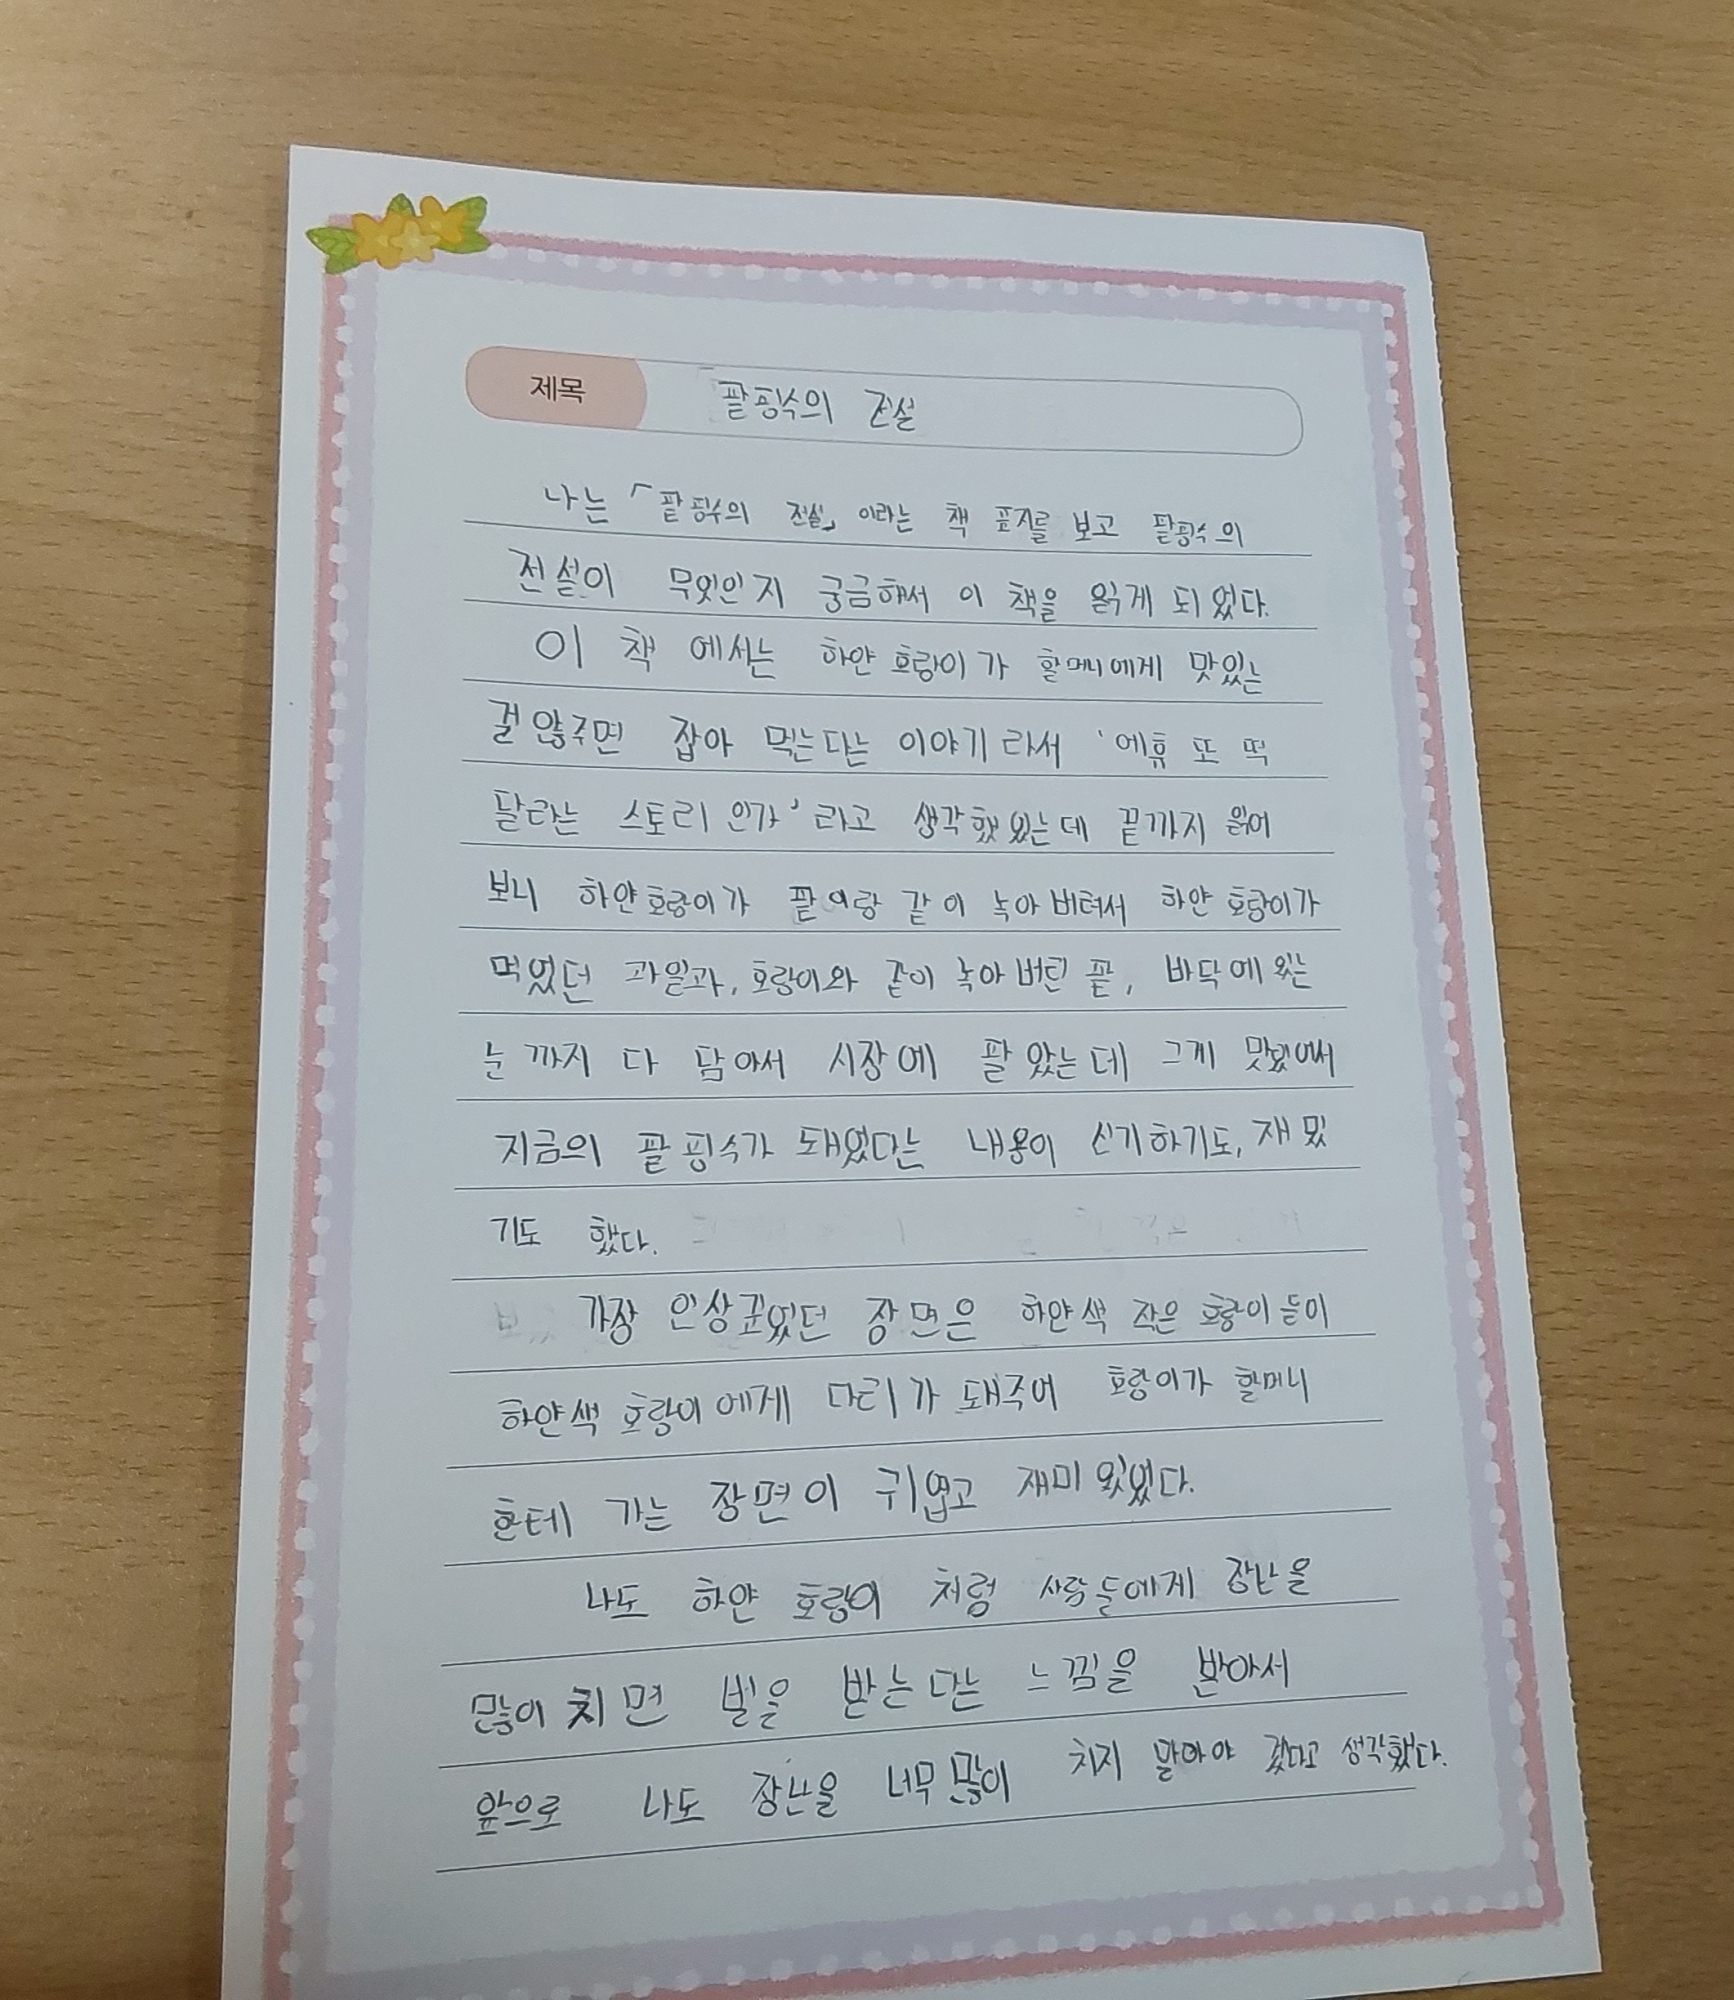 제목 팥핑수의 전설
나는 「팥핑수의 전설」이라는 책 표지를 보고 팥핑수의
전설이 무엇인지 궁금해서 이 책을 읽게 되었다.
이 책 에서는 하얀 호랑이가 할머니에게 맛있는
걸 않주면 잡아 먹는다는 이야기라서 '에휴 또 떡
달라는 스토리 인가'라고 생각했었는데 끝까지 읽어
보니 하얀호랑이가 팥이랑 같이 녹아 버려서 하얀 호랑이가
먹었던 과일과, 호랑이와 같이 녹아 버린 팥, 바닥에 있는
눈 까지 다 담아서 시장에 팔았는데 그게 맛있어서
지금의 팥핑수가 돼었다는 내용이 신기하기도, 재밌
기도 했다.
가장 인상깊었던 장면은 하얀색 작은 호랑이들이
하얀색 호랑이에게 다리가 돼주어 호랑이가 할머니
한테 가는 장면이 귀엽고 재미있었다.
나도 하얀 호랑이 처럼 사람들에게 장난을
많이 치면 벌을 받는다는 느낌을 받아서
앞으로 나도 장난을 너무 많이 치지 말아야 겠다고 생각했다.